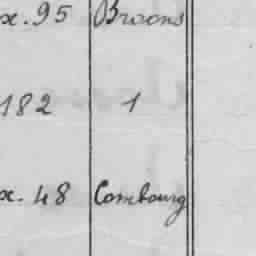 x. 95 Broons
182 1
x. 48 Combourg